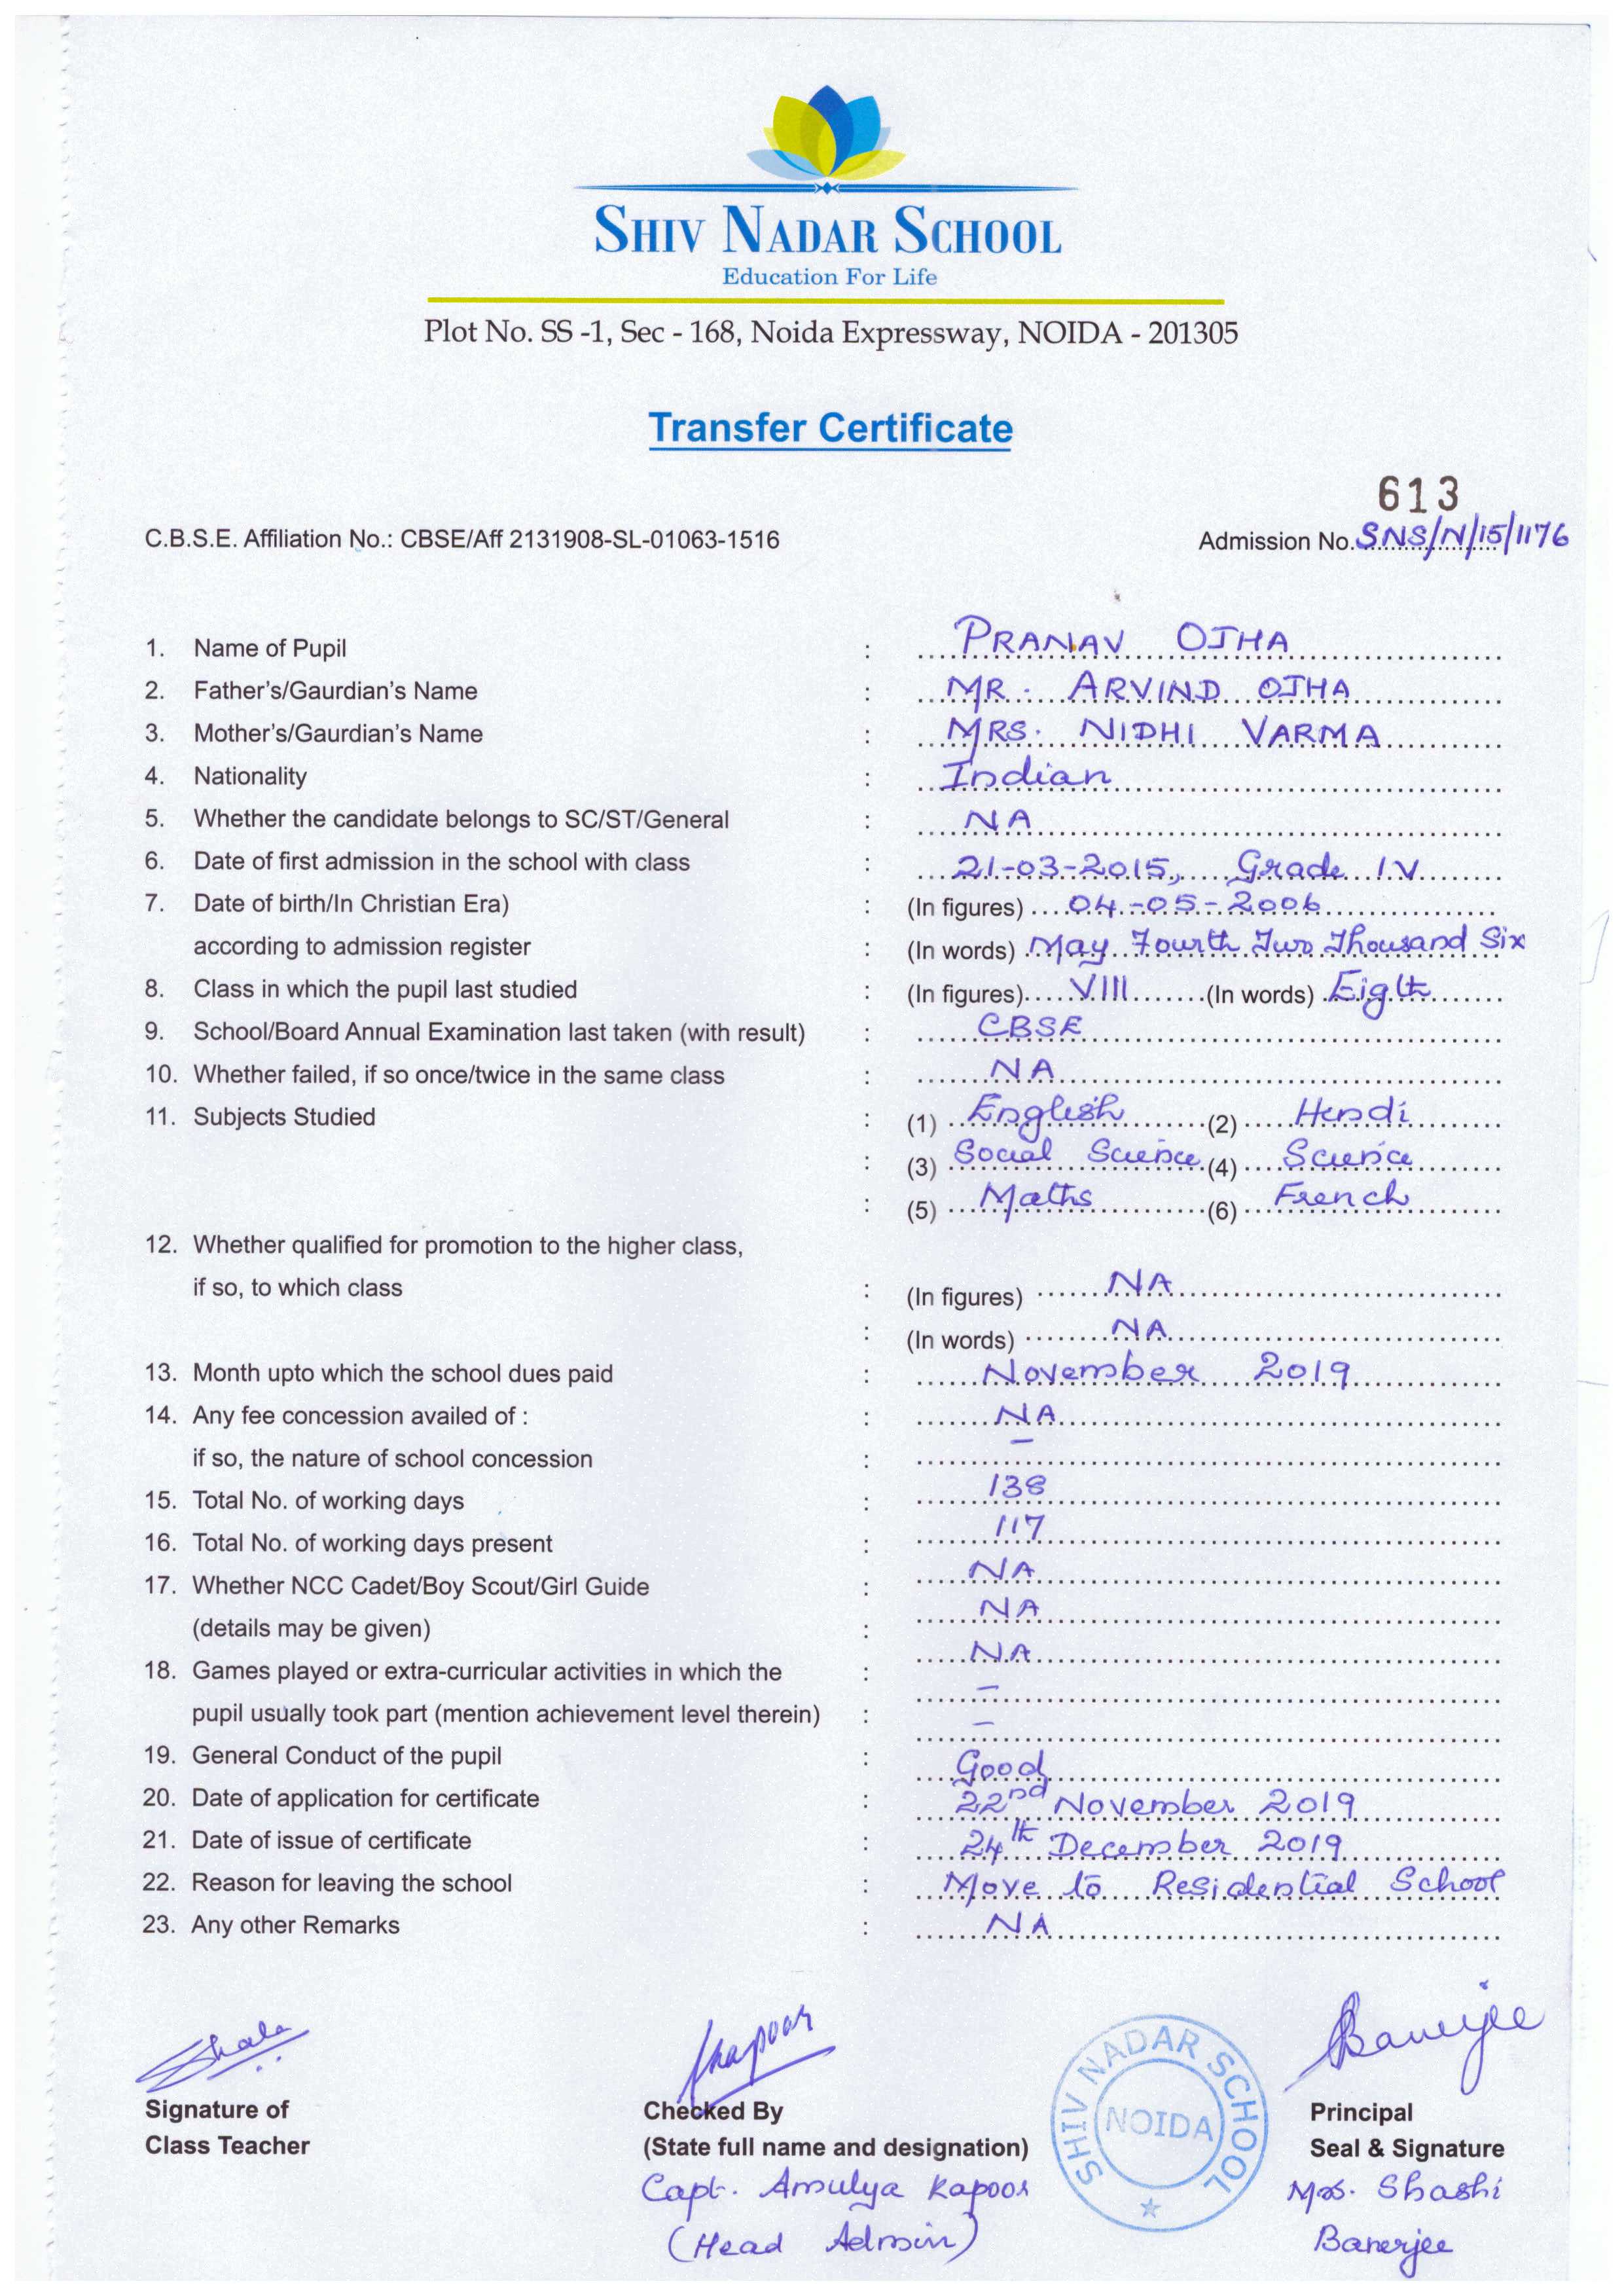 SHIV NADAR SCHOOL
Education For Life
Plot No. SS -1, Sec - 168, Noida Expressway, NOIDA - 201305
Transfer Certificate
613
C.B.S.E. Affiliation No.: CBSE/Aff 2131908-SL-01063-1516 Admission No. SNS/N/15/1176
1. Name of Pupil : PRANAV OJHA
2. Father's/Gaurdian's Name : MR. ARVIND OJHA
3. Mother's/Gaurdian's Name : MRS. NIDHI VARMA
4. Nationality : Indian
5. Whether the candidate belongs to SC/ST/General : NA
6. Date of first admission in the school with class : 21-03-2015, Grade IV
7. Date of birth/In Christian Era) : (In figures) 04-05-2006
according to admission register : (In words) May Fourth Two Thousand Six
8. Class in which the pupil last studied : (In figures) VIII (In words) Eigth
9. School/Board Annual Examination last taken (with result) : CBSE
10. Whether failed, if so once/twice in the same class : NA
11. Subjects Studied : (1) English (2) Hindi
: (3) Social Science (4) Science
: (5) Maths (6) French
12. Whether qualified for promotion to the higher class,
if so, to which class : (In figures) NA
: (In words) NA
13. Month upto which the school dues paid : November 2019
14. Any fee concession availed of : : NA
if so, the nature of school concession : –
15. Total No. of working days : 138
16. Total No. of working days present : 117
17. Whether NCC Cadet/Boy Scout/Girl Guide : NA
(details may be given) : NA
18. Games played or extra-curricular activities in which the : NA
pupil usually took part (mention achievement level therein) : –
–
19. General Conduct of the pupil : Good
20. Date of application for certificate : 22nd November 2019
21. Date of issue of certificate : 24th December 2019
22. Reason for leaving the school : Move to Residential School
23. Any other Remarks : NA
Kapoor Banerjee
SHIV NADAR SCHOOL
NOIDA
Signature of Checked By Principal
Class Teacher (State full name and designation) Seal & Signature
Capt. Amulya Kapoor Mrs. Shashi
(Head Admin) Banerjee